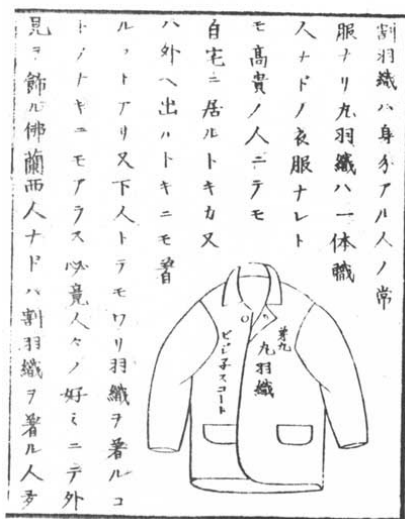 割羽織ハ身分アル人ノ常
服ナリ丸羽織ハ一体職
人ナドノ衣服ナレト
モ高貴ノ人ニテモ
自宅ニ居ルトキカ又
ハ外ヘ出ルトキニモ著
ルコトアリ又下人トテモワリ羽織ヲ著ルコ
トナキニモアラス必竟人々ノ好ミニテ外
見ヲ飾ル佛蘭西人ナドハ割羽織ヲ著ル人多
第九
丸羽織
ビジ子スコート